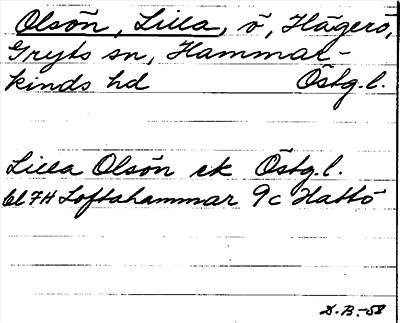 Olsön, Lilla, ö, Hägerö,
Gryts sn, Hammar-
kinds hd Östg.l.
Lilla Olsön ek Östg.l.
bl 7H Loftahammar 9c Hattö
D.B.-58